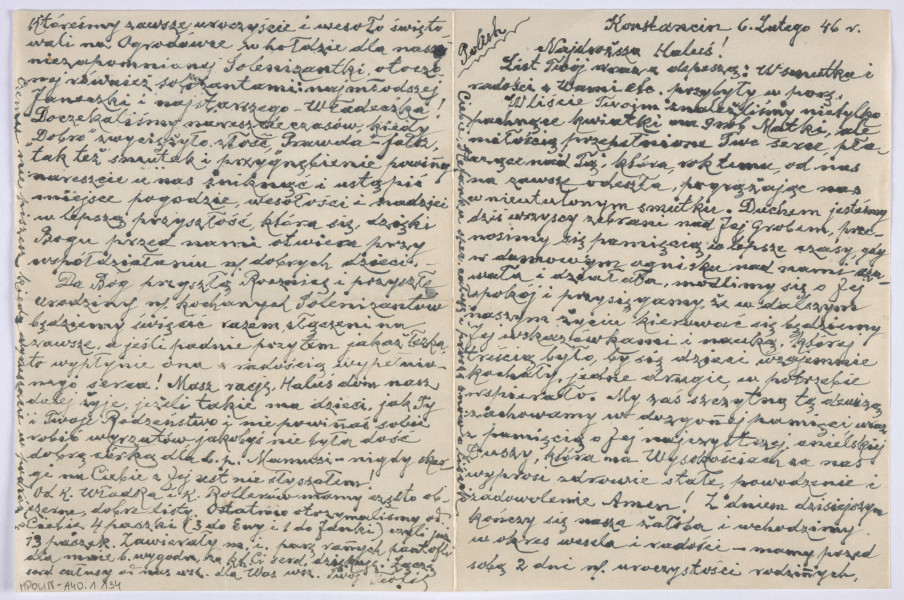 Konstancin 6. Lutego 46 r.
Polish
Najdroższa Haluś!
List Twój wraz z depeszą: W smutku i
radości z Wami etc. przybyły w porę.
W liście Twoim znaleźliśmy nietylko
pachnące kwiatki na grób Matki, ale
miłością przepełnione Twe serce pła-
czące nad Tą, która rok temu, od nas
na zawsze odeszła, pogrążając nas
w nieutulonym smutku. Duchem jesteśmy
dziś wszyscy zebrani nad Jej Grobem, prze-
nosimy się pamięcią w lepsze czasy, gdy
w domowym ognisku nad nami czu-
wała i działała, modlimy się o Jej
spokój i przysięgamy, że w dalszym
naszym życiu kierować się będziemy
Jej wskazówkami i nauką, której
treścią było, by się dzieci wzajemnie
kochały, jedne drugie w potrzebie
wspierało. My zaś szczytną tę
zachowamy w dozgonnej pamięci wraz
z pamięcią o Jej najczystszej anielskiej
Duszy, która na Wysokościach za nas
wyprosi zdrowie stałe, powodzenie i
zadowolenie Amen! Z dniem dzisiejszym
kończy się nasza żałoba i wchodzimy
w okres wesela i radości – mamy przed
sobą 2 dni n/. uroczystości rodzinnych,
któreśmy zawsze uroczyście i wesoło święto
wali na Ogrodówce, w hołdzie dla naszej
niezapomnianej Solenizantki, otoczo-
nej również solenizantami: najmłodszej
Janeczki i najstarszego Władeczka!
Doczekaliśmy nareszcie czasów, kiedy
Dobro zwyciężyło złość, Prawda – fałsz,
tak też smutek i przygnębienie powinny
nareszcie u nas zniknąć i ustąpić
miejsce pogodzie, wesołości i nadziei
w lepszą przyszłość, która się, dzięki
Bogu przed nami otwiera przy
współdziałaniu n/. dobrych dzieci. –
Da Bóg przyszłą Rocznicę i przyszłe
urodziny n/. kochanych Solenizantów
będziemy święcić razem złączeni na
zawsze, a jeśli padnie przytem jakaś łezka,
to wypłynie ona z radością wypełnio-
nego serca! Masz rację, Haluś dom nasz
dalej żyje, jeżeli takie ma dzieci, jak Ty
i Twoje Rodzeństwo i nie powinnaś sobie
robić wyrzutów jakobyś nie była dość
dobrą córką dla ś.p. Mamusi – nigdy skar-
gi na Ciebie z Jej ust nie słyszałem.
Od k. Władka i k. Rollerów mamy często ob-
szerne, dobre listy. Ostatnio otrzymaliśmy od
Ciebie 4 paczki (3 do Ewy i 1 do Janki) czyli już
13 paczek. Zawierały m. i. parę rannych pantofli
dla mnie b. wygodn. za kt. Ci serd. dziękuję. Łączę
serd. całusy od nas wsz. dla Was wsz. Twój
MPOLIN-A40.1.134